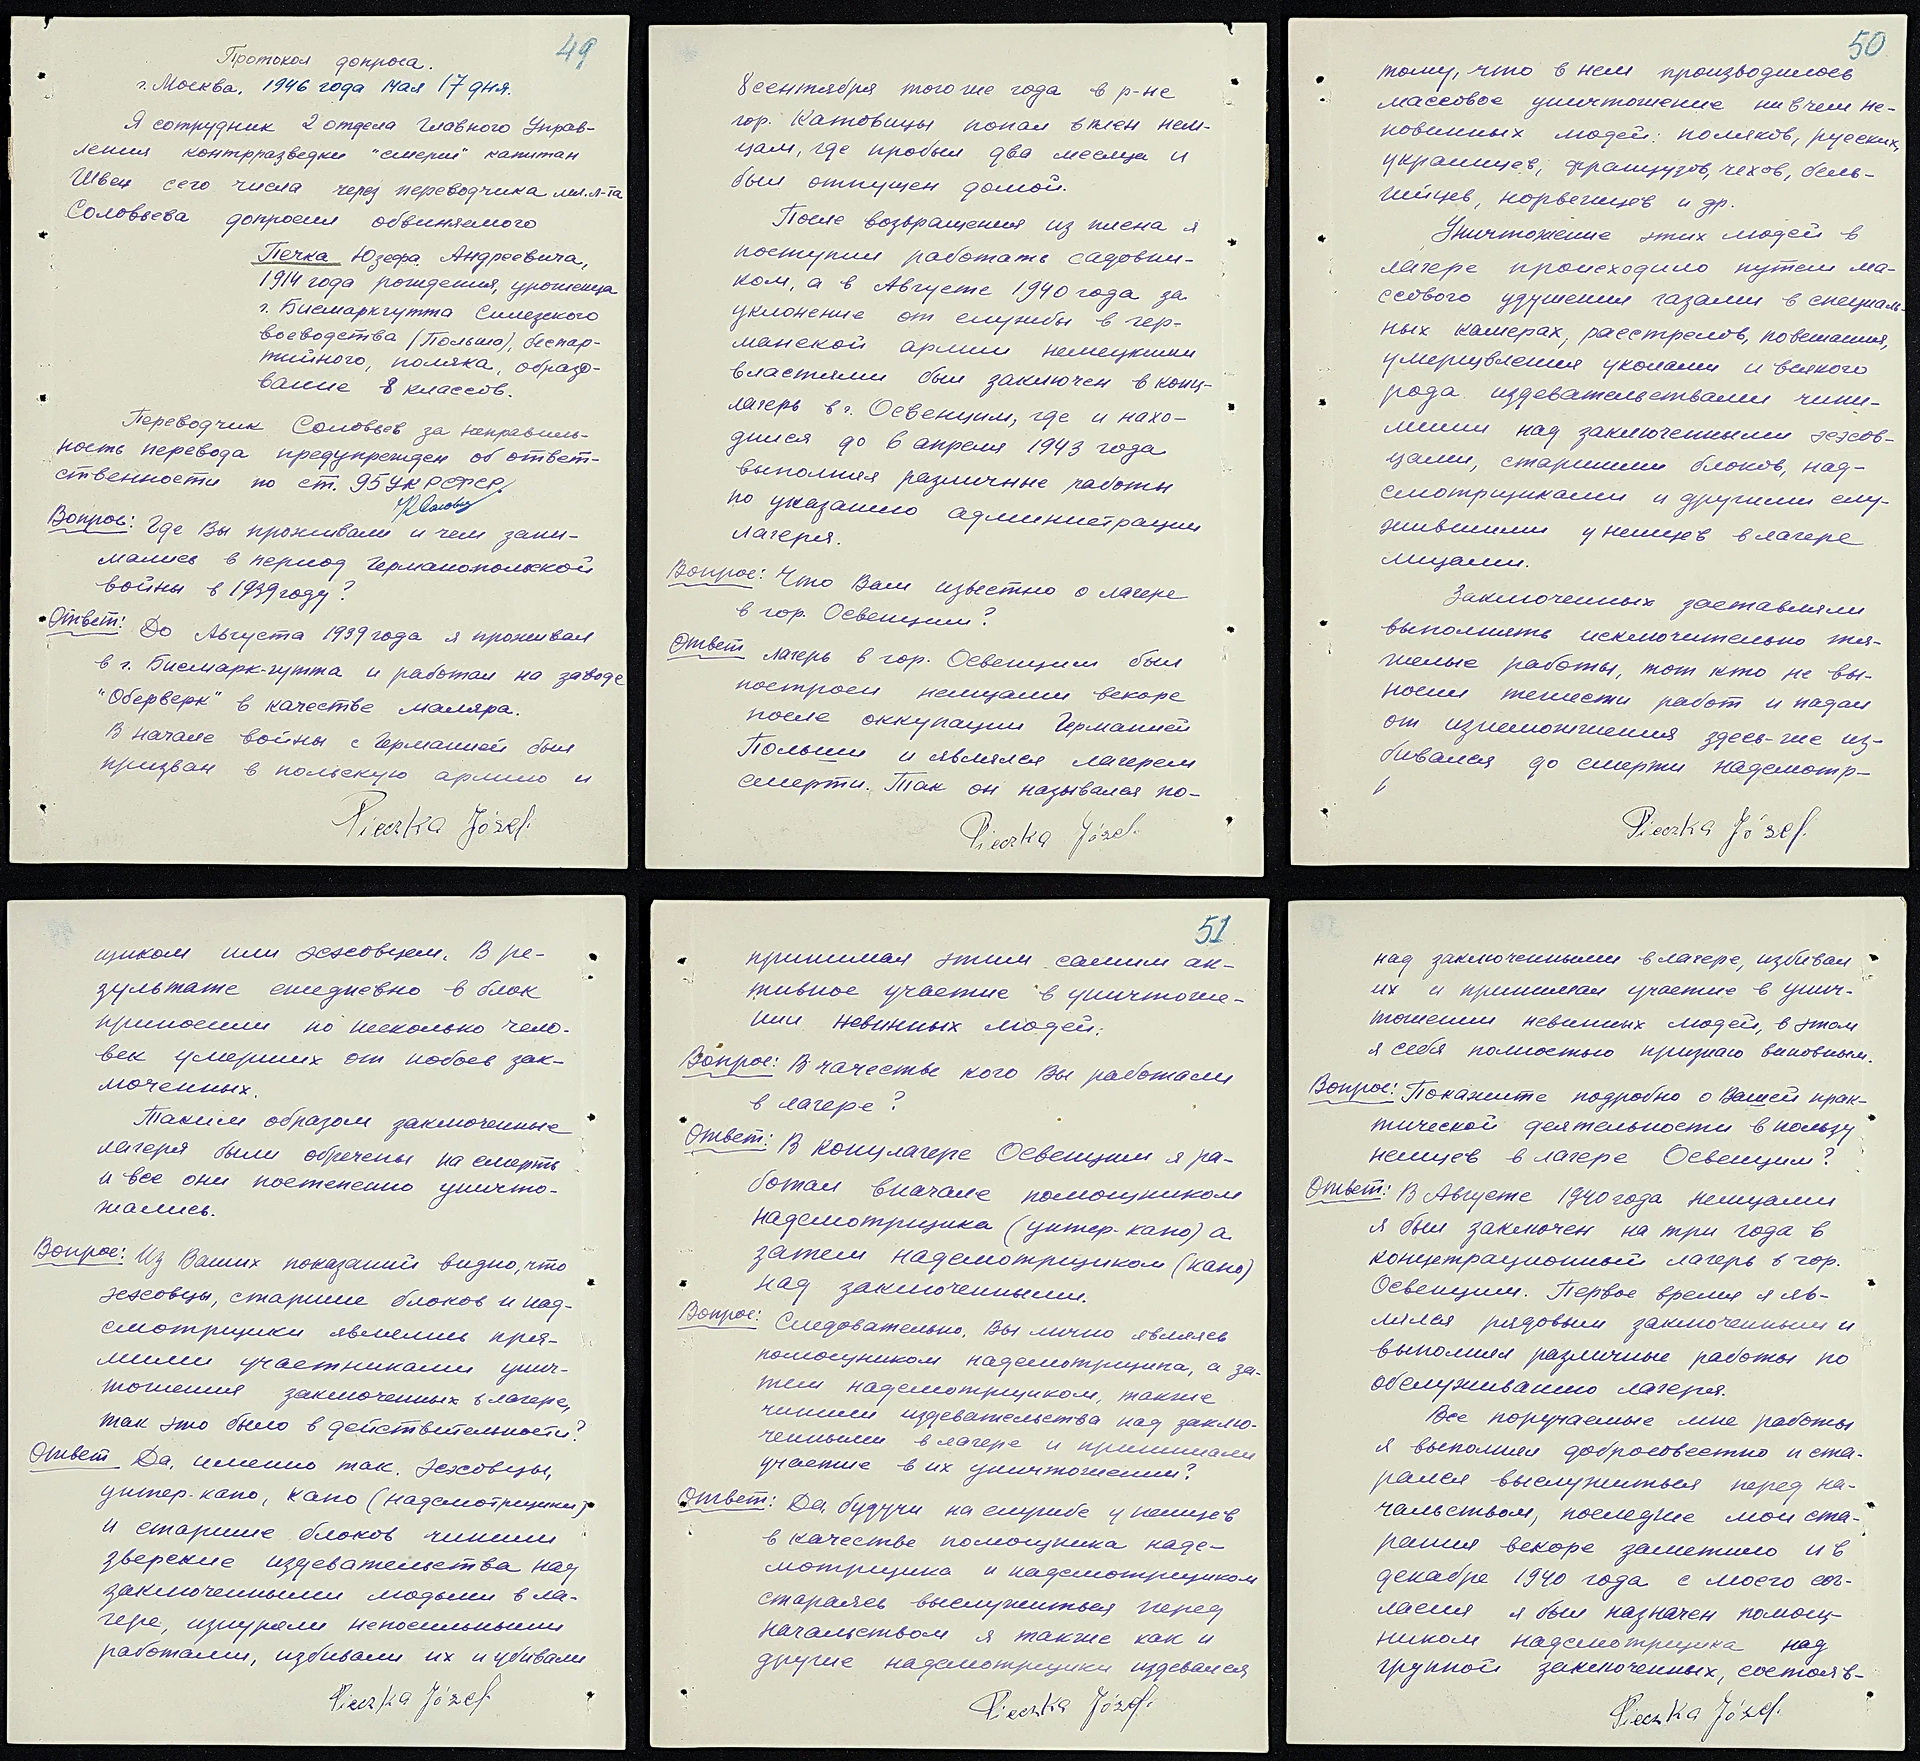 49
Протокол допроса.
г. Москва, 1946 года мая 17 дня.
Я сотрудник 2 отдела Главного Управ-
ления контрразведки "смерш" капитан
Швец сего числа через переводчика мл. л-та
Соловьева допросил обвиняемого
Печка Юзефа Андреевича,
1914 года рождения, уроженца
г. Бисмаркгутта Силезского
воеводства (Польша), беспар-
тийного, поляка, образо-
вание 8 классов.
Переводчик Соловьев за неправиль-
ность перевода предупрежден об ответ-
ственности по ст. 95 УК РСФСР.
Вопрос: Где Вы проживали и чем зани-
мались в период Германопольской
войны в 1939 году?
Ответ: До Августа 1939 года я проживал
в г. Бисмарк-гутта и работал на заводе
"Оберверк" в качестве маляра.
В начале войны с Германией был
призван в польскую армию и
Pieczka Józef.
8 сентября того же года в р-не
гор. Катовицы попал в плен нем-
цам, где пробыл два месяца и
был отпущен домой.
После возвращения из плена я
поступил работать садовни-
ком, а в Августе 1940 года за
уклонение от службы в гер-
манской армии немецкими
властями был заключен в конц-
лагерь в г. Освенцим, где и нахо-
дился до 6 апреля 1943 года
выполняя различные работы
по указанию администрации
лагеря.
Вопрос: Что Вам известно о лагере
в гор. Освенцим?
Ответ лагерь в гор. Освенцим был
построен немцами вскоре
после оккупации Германией
Польши и являлся лагерем
смерти. Так он назывался по-
Pieczka Józef.
50
тому, что в нем производилось
массовое уничтожение ни в чем не-
повинных людей: поляков, русских,
украинцев, французов, чехов, бель-
гийцев, норвежцев и др.
Уничтожение этих людей в
лагере происходило путем ма-
ссового удушения газами в специаль-
ных камерах, расстрелов, повешания,
умерщвления уколами и всякого
рода издевательствами чини-
мыми над заключенными эсэсов-
цами, старшими блоков, над-
смотрщиками и другими слу-
жившими у немцев в лагере
лицами.
Заключенных заставляли
выполнять исключительно тя-
желые работы, тот кто не вы-
носил тяжести работ и падал
от изнеможения здесь-же из-
бивался до смерти надсмотр-
Pieczka Józef.
щиком или эсэсовцем. В ре-
зультате ежедневно в блок
приносили по несколько чело-
век умерших от побоев зак-
люченных.
Таким образом заключенные
лагеря были обречены на смерть
и все они постепенно уничто-
жались.
Вопрос: Из Ваших показаний видно, что
эсэсовцы, старшие блоков и над-
смотрщики являлись пря-
мыми участниками унич-
тожения заключенных в лагере,
так это было в действительности?
Ответ Да, именно так. Эсэсовцы,
унтер-капо, капо (надсмотрщики)
и старшие блоков чинили
зверские издевательства над
заключенными людьми в ла-
гере, изнуряли непосильными
работами, избивали их и убивали
Pieczka Józef.
51
принимая этим самым ак-
тивное участие в уничтоже-
нии невинных людей.
Вопрос: В качестве кого Вы работали
в лагере?
Ответ: В концлагере Освенцим я ра-
ботал вначале помощником
надсмотрщика (унтер-капо) а
затем надсмотрщиком (капо)
над заключенными.
Вопрос: Следовательно, Вы лично являясь
помощником надсмотрщика, а за-
тем надсмотрщиком, также
чинили издевательства над заклю-
ченными в лагере и принимали
участие в их уничтожении?
Ответ: Да, будучи на службе у немцев
в качестве помощника надс-
мотрщика и надсмотрщиком
стараясь выслужиться перед
начальством я также как и
другие надсмотрщики издевался
Pieczka Józef.
над заключенными в лагере, избивал
их и принимал участие в унич-
тожении невинных людей, в этом
я себя полностью признаю виновным.
Вопрос: Покажите подробно о Вашей прак-
тической деятельности в пользу
немцев в лагере Освенцим?
Ответ: В Августе 1940 года немцами
я был заключен на три года в
концетрационный лагерь в гор.
Освенцим. Первое время я яв-
лялся рядовым заключенным и
выполнял различные работы по
обслуживанию лагеря.
Все поручаемые мне работы
я выполнял добросовестно и ста-
рался выслужиться перед на-
чальством, последнее мои ста-
рания вскоре заметило и в
декабре 1940 года с моего сог-
ласия я был назначен помощ-
ником надсмотрщика над
группой заключенных, состояв-
Pieczka Józef.